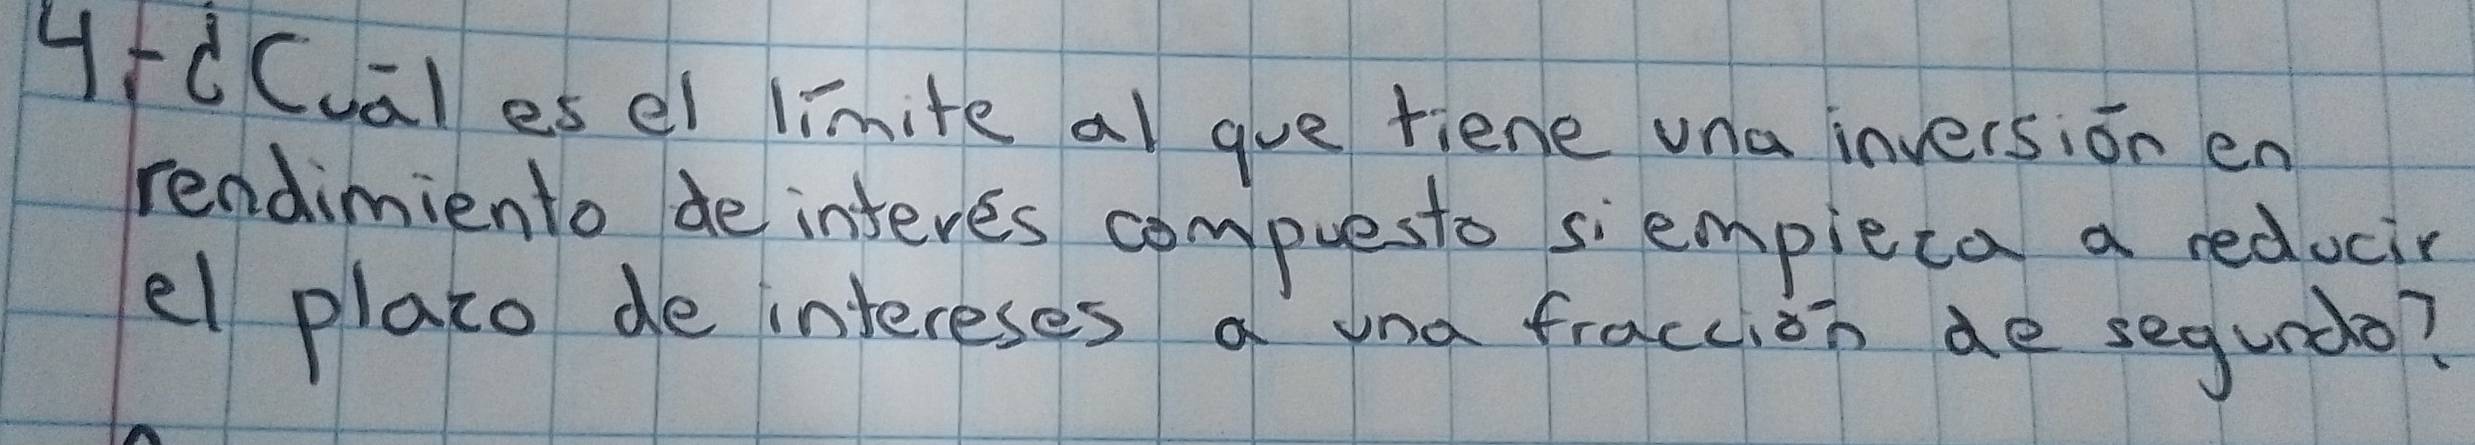 4-¿Cuál es el límite al que tiene una inversión en
rendimiento de interés compuesto si empieza a reducir
el plazo de intereses a una fracción de segundo?